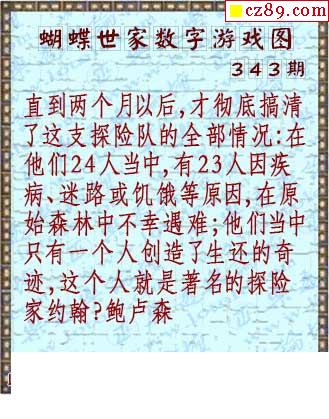 cz89.com
蝴蝶世家数字游戏图
343期
直到两个月以后,才彻底搞清
了这支探险队的全部情况:在
他们24人当中,有23人因疾
病、迷路或饥饿等原因,在原
始森林中不幸遇难;他们当中
只有一个人创造了生还的奇
迹,这个人就是著名的探险
家约翰?鲍卢森